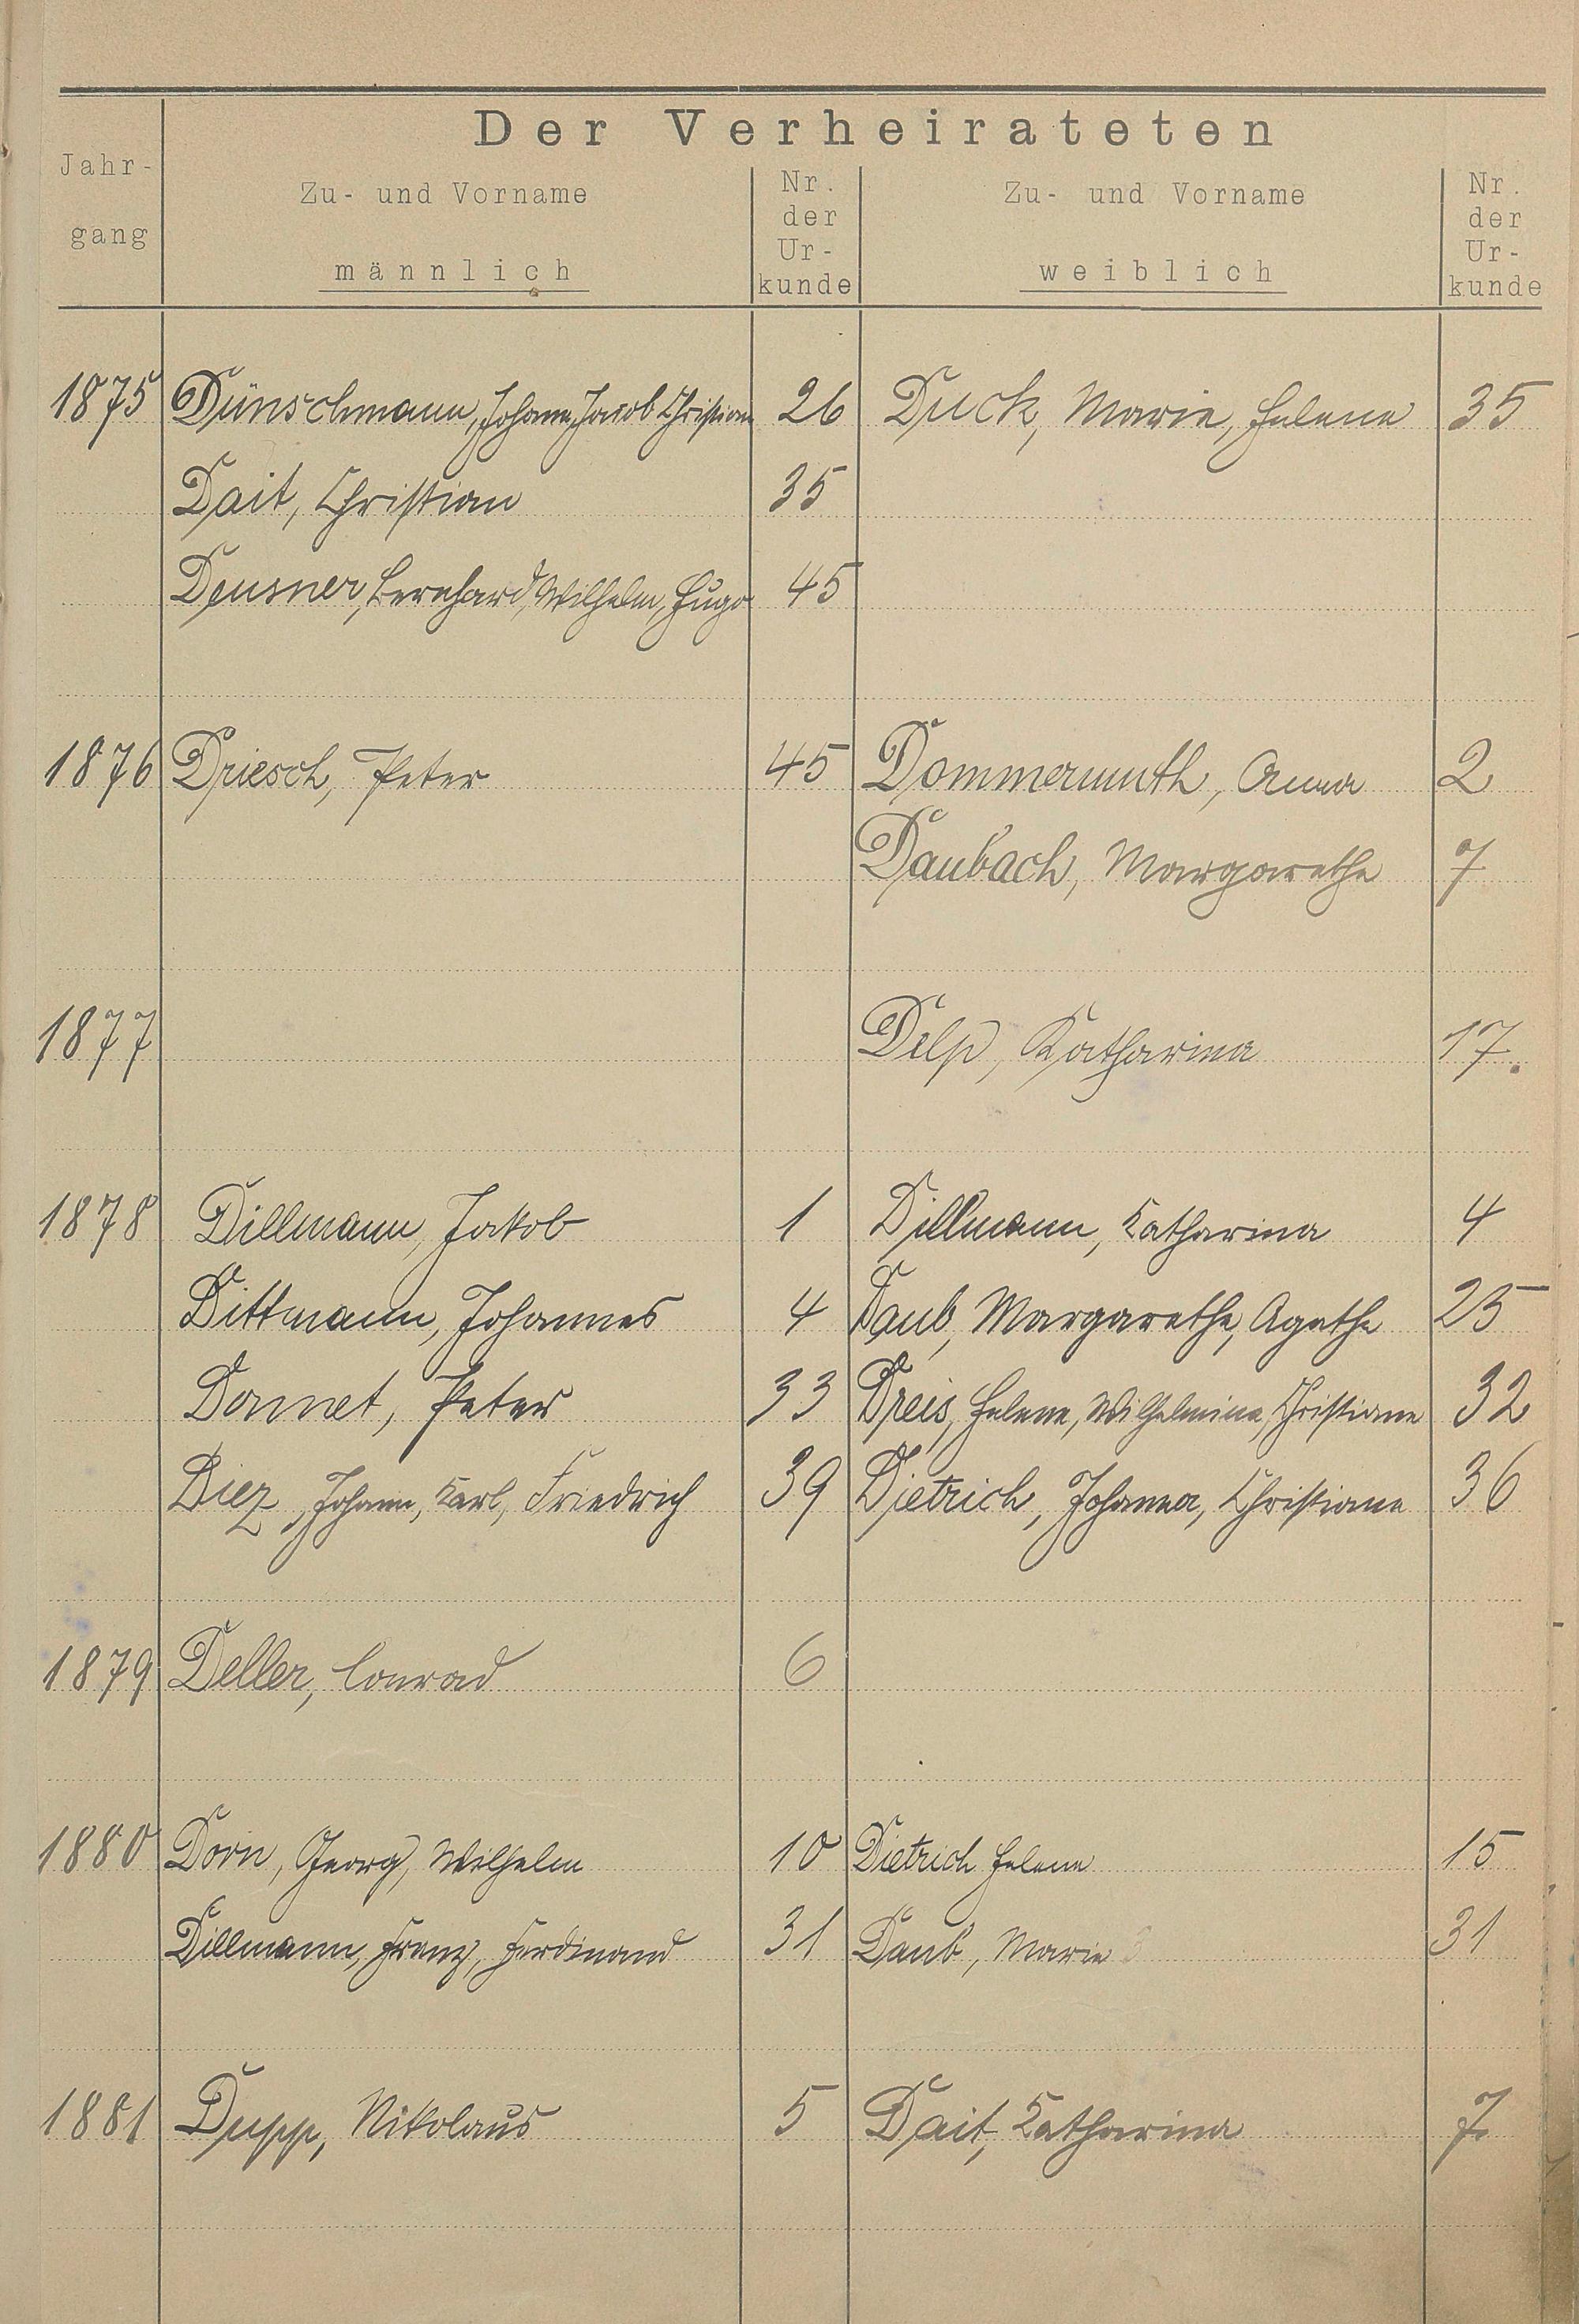 Der Verheirateten
Jahr-
gang
Zu- und Vorname
männlich
Nr.
der
Ur-
kunde
Zu- und Vorname
weiblich
Nr.
der
Ur-
kunde
1875 Dünschmann, Johann, Jacob Christian 26 Duck, Marie, Helene 35
Dait, Christian 35
Deusner, Bernhard, Wilhelm, Hugo 45
1876 Driesch, Peter 45 Dommermuth, Anna 2
Daubach, Margarethe 7
1877 Delp, Katharina 17.
1878 Dillmann, Jakob 1 Dillmann, Katharina 4
Dittmann, Johannes 4 Daub, Margarethe, Agathe 25
Donnet, Peter 33 Dreis, Helene, Wilhelmine, Christiane 32
Diez, Johann, Karl, Friedrich 39 Dietrich, Johanna, Christiane 36
1879 Deller, Conrad 6
1880 Dorn, Georg, Wilhelm 10 Dietrich Helene 15
Dillmann, Franz, Ferdinand 31 Daub, Marie 31
1881 Dupp, Nikolaus 5 Dait, Katharina 7.